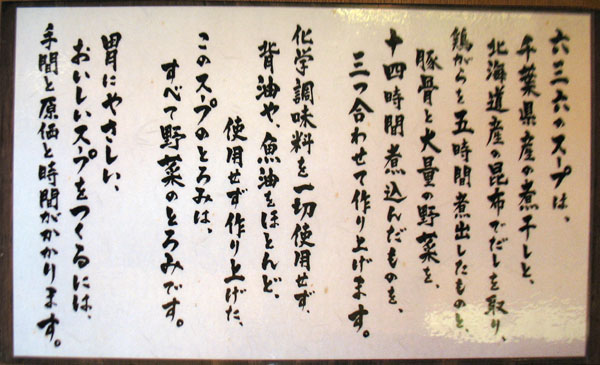 六三六のスープは、
千葉県産の煮干しと、
北海道産の昆布でだしを取り、
鶏がらを五時間煮出したものと、
豚骨と大量の野菜を、
十四時間煮込んだものを、
三つ合わせて作り上げます。
化学調味料を一切使用せず、
背油や、魚油をほとんど、
使用せず作り上げた、
このスープのとろみは、
すべて野菜のとろみです。
胃にやさしい、
おいしいスープをつくるには、
手間と原価と時間がかかります。